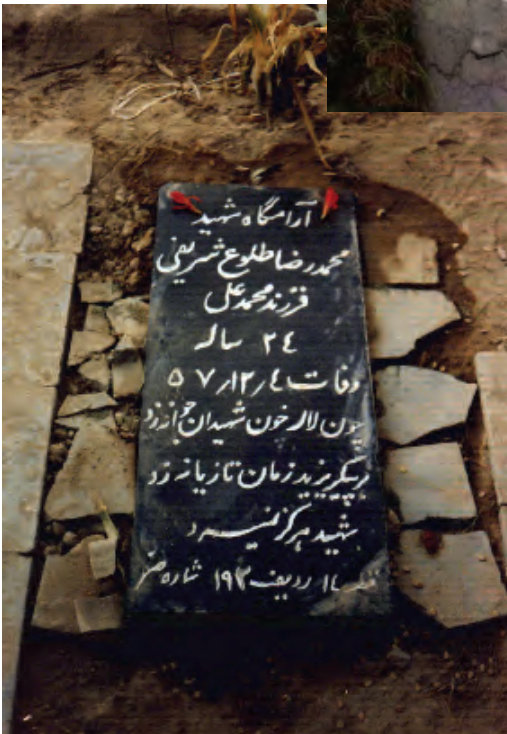 آرامگاه شهید
محمدرضا طلوع شریفی
فرزند محمد علی
٢٤ ساله
وفات ٥٧٫١٢٫٤
چون لاله خون شهیدان جوانه زد
بر پیکر یزید زمان تازیانه زد
شهید هرگز نمیرد
ردیف ١٩٢ شماره